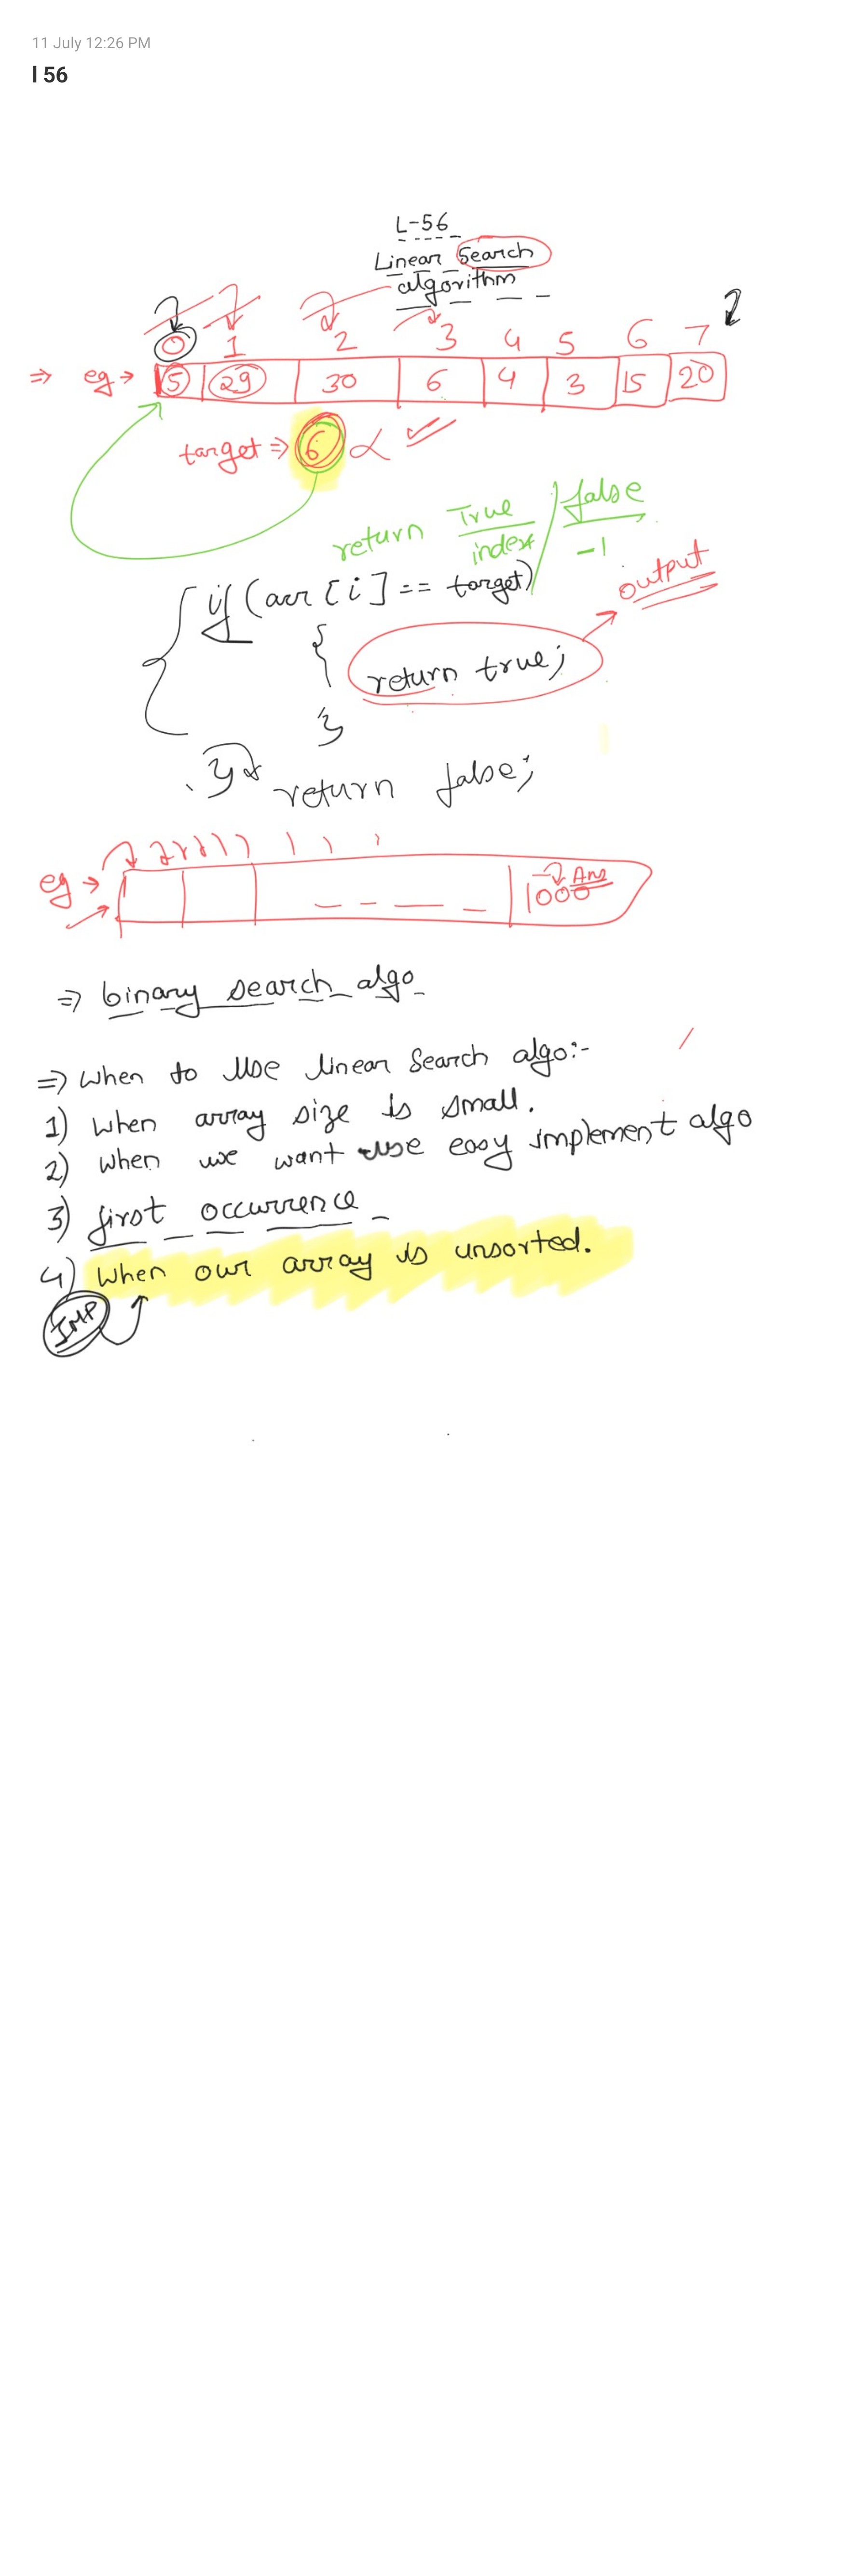 11 July 12:26 PM
l 56
L-56
Linear Search
algorithm
0 1 2 3 4 5 6 7
⇒ eg → 5 29 30 6 4 3 15 20
target ⇒ 6
return True / false
index -1
if (arr[i] == target)
output
{
return true;
}
}
return false;
eg → 1000 Ans
⇒ binary search algo
⇒ When to Use linear Search algo:-
1) When array size is small.
2) When we want use easy implement algo
3) first occurrence
4) When our array is unsorted.
IMP